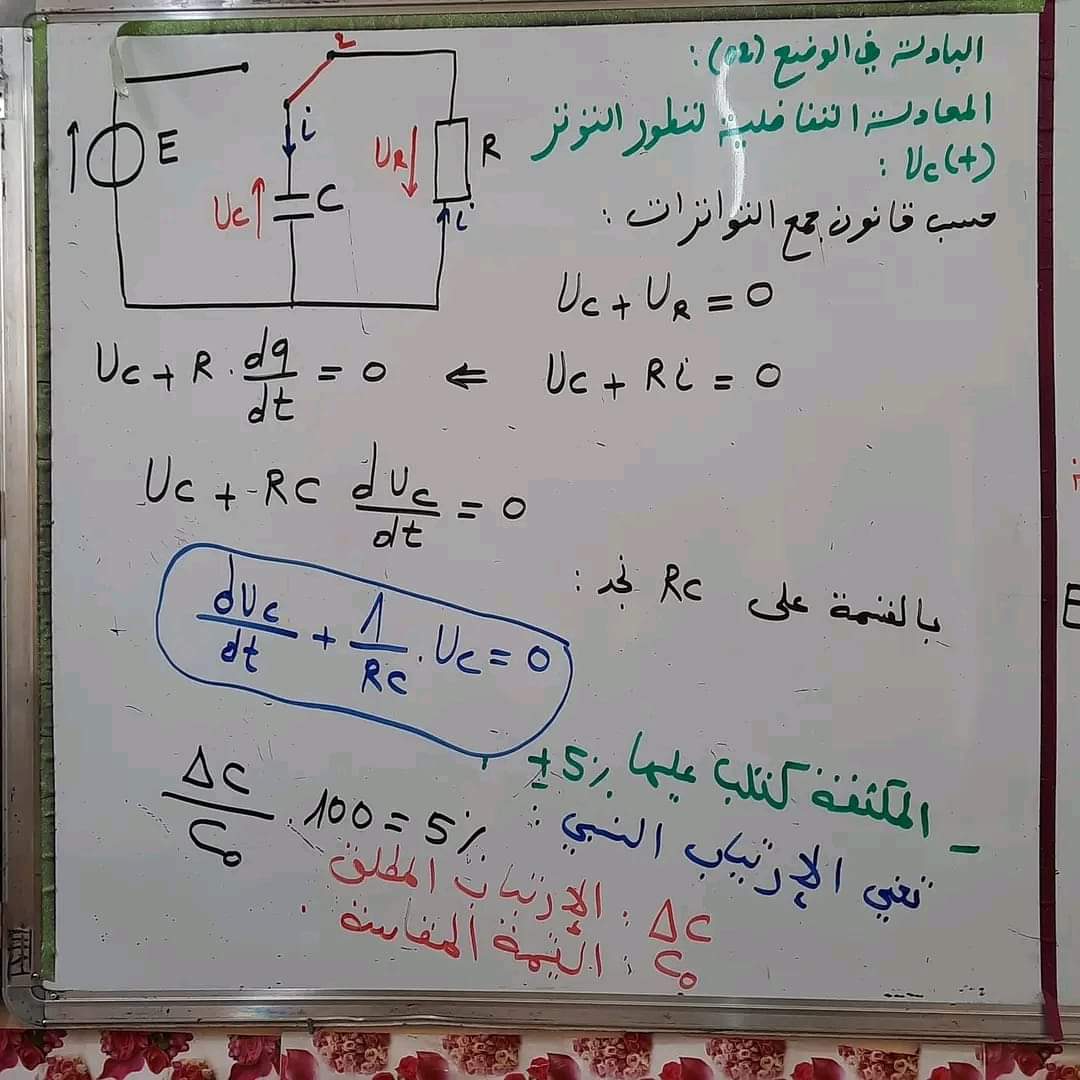 البادلة في الوضع (02):
المعادلة التفاضلية لتطور التوتر
Uc(t) :
حسب قانون جمع التوترات :
2
i
E
UR
R
Uc
C
i
Uc + UR = 0
Uc + Ri = 0 ⇐ Uc + R . dq/dt = 0
Uc + RC dUc/dt = 0
بالقسمة على RC نجد :
dUc/dt + 1/RC . Uc = 0
- المكثفة كتب عليها ±5%
تعني الإرتياب النسبي : ΔC/C₀ . 100 = 5%
ΔC : الإرتياب المطلق
C₀ : القيمة المقاسة .
E